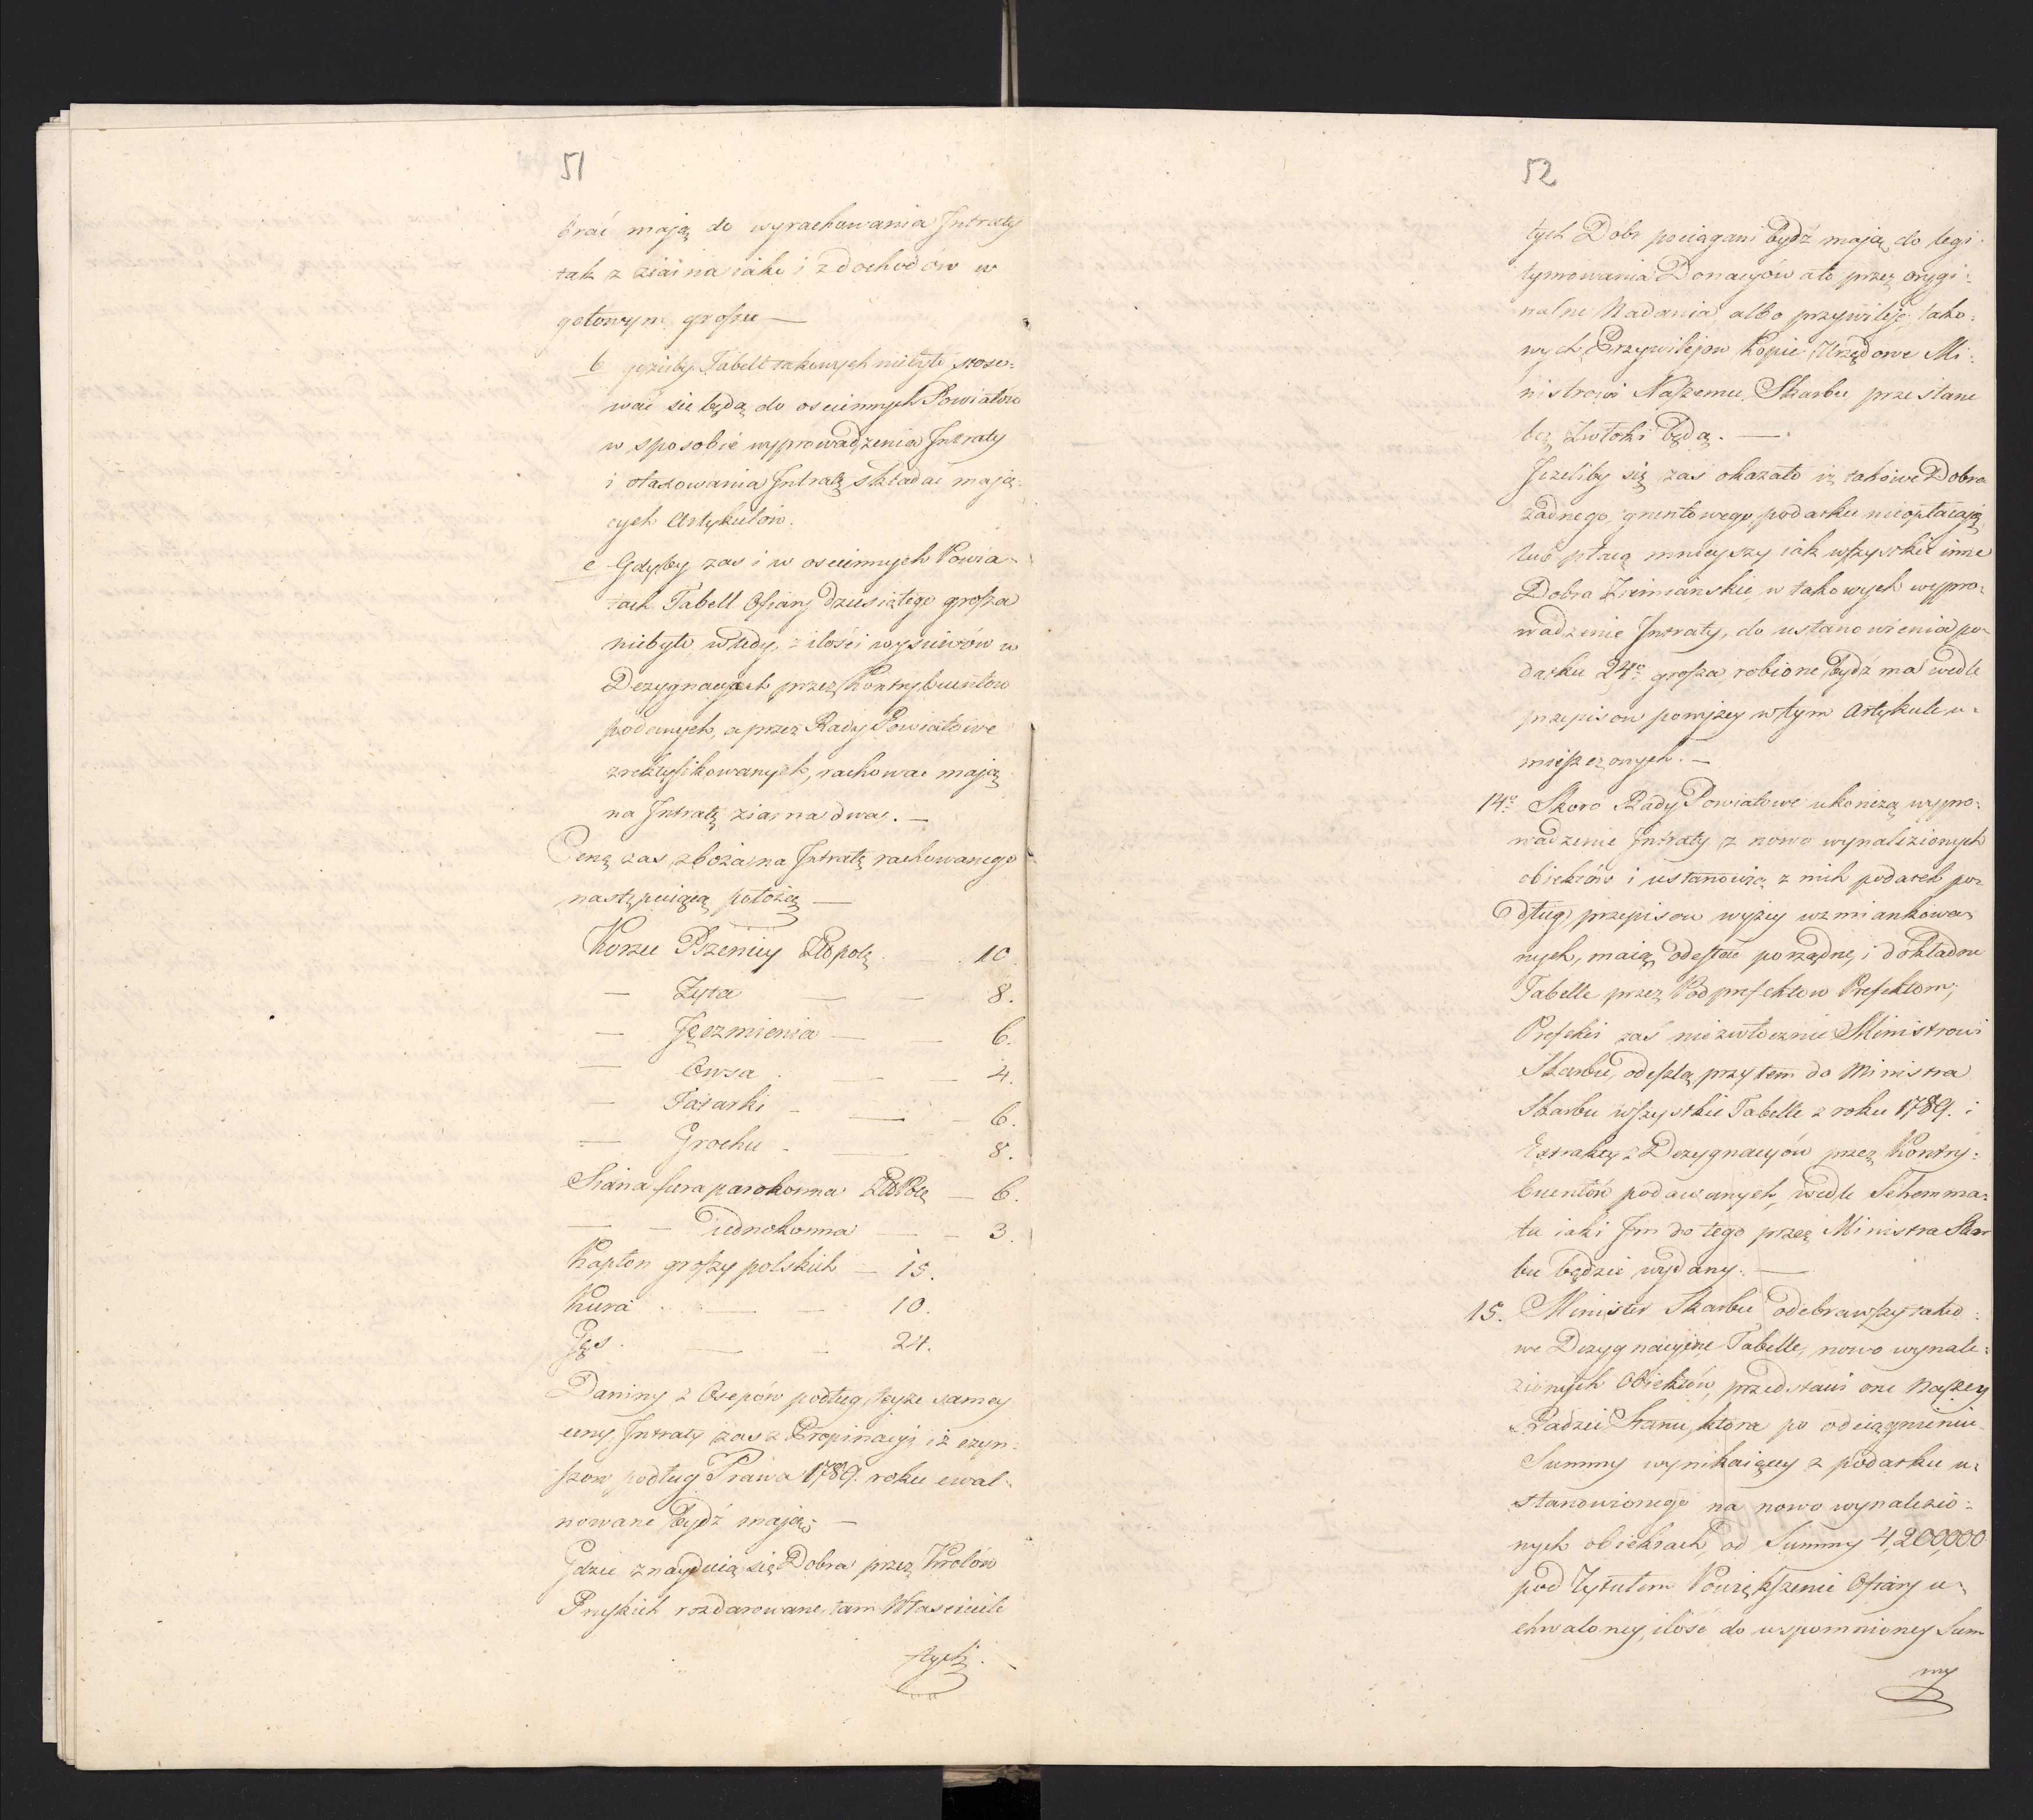 51
brać mają do wyrachowania Intraty
tak z ziarna iako i z dochodów w
gotowym groszu —
b gdzieby Tabell takowych niebyło stoso=
wać się będą do osciennych Powiatów
w sposobie wyprowadzenia Intraty
i otaxowania Intratę składać mają=
cych Artykułów.
c Gdyby zas i w osciennych Powia=
tach Tabell Ofiary dziesiątego grosza
niebyło, wtedy, z ilości wysiewów w
Dezygnacyach przez Kontrybuentow
podanych, a przez Rady Powiatowe
zrektyfikowanych, rachować mają
na Intratę ziarna dwa. —
Cenę zas zboża na Intratę rachowanego
następuiącą położą —
Korzec Pszenicy Złłpolą — 10.
— Zyta — — 8.
— Jęczmienia — — 6.
— Owsa — — 4.
— Tatarki — — 6.
— Grochu — — 8.
Siana fura parokonna ZłłPolę — 6.
— — iednokonna — — 3.
Kapłon groszy polskich — 15.
Kura — — 10.
Gęs — — 24.
Daniny z Osepów podług teyże samey
ceny, Intraty zas z Propinacyi iż czyn=
szow podług Prawa 1789. roku ewal=
nowane bydź mają —
Gdzie znayduią się Dobra przez Królów
Pruskich rozdarowane, tam Własciciele
tych
52
tych Dobr pociągani bydź mają do legi=
tymowania Donacyów ato przez orygi=
nalne Nadania, albo przywileje, tako=
wych Przywilejow Kopie Urzędowe Mi=
nistrowi Naszemu Skarbu przesłane
bez Zwłoki będą. —
Jezeliby się zas okazało iż takowe Dobra
zadnego gruntowego podatku nieopłacają
lub płacą mnieyszy iak wszystkie inne
Dobra Ziemianskie, w takowych wypro=
wadzenie Intraty, do ustanowienia po=
datku 24go grosza, robione bydź ma wedle
przepisow powyzey w tym Artykule u=
mieszczonych. —
14o Skoro Rady Powiatowe ukończą wypro=
wadzenie Intraty z nowo wynalezionych
obiektów i ustanowią z nich podatek po=
dług przepisow wyżey wzmiankowa=
nych, maią odesłać porządne, i dokładne
Tabelle przez Podprefektow Prefektom;
Prefekci zaś niezwłocznie Ministrowi
Skarbu, odeszlą przytem do Ministra
Skarbu wszystkie Tabelle z roku 1789. i
Extrakty z Dezygnacyów przez Kontry=
buentów podawanych, wedle Schemma=
tu iaki Im do tego przez Ministra Skar
bu będzie wydany. —
15. Minister Skarbu odebrawszy tako=
we Dezygnacyine Tabelle, nowo wynale=
zionych Obiektów, przedstawi one Naszey
Radzie Stanu, która po odciągnieniu
Summy wynikaiącey z podatku u=
stanowionego na nowo wynalezio=
nych obiektach, od Summy 4,200,000
pod Tytułem Powiększenie Ofiary u=
chwaloney, ilość do wspomnioney Sum
my